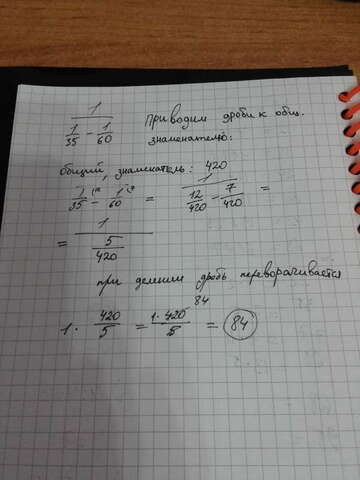 1 / (1/35 - 1/60) Приводим дроби к общ.
знаменателю:
Общий знаменатель: 420
1/35 - 1/60 = 1 / (12/420 - 7/420) =
= 1 / (5/420)
при делении дробь переворачивается
1 · 420/5 = 1·420/5 84 = 84